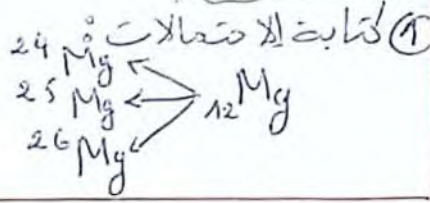 ① كتابة الاحتمالات :
²⁴Mg
²⁵Mg ₁₂Mg
²⁶Mg